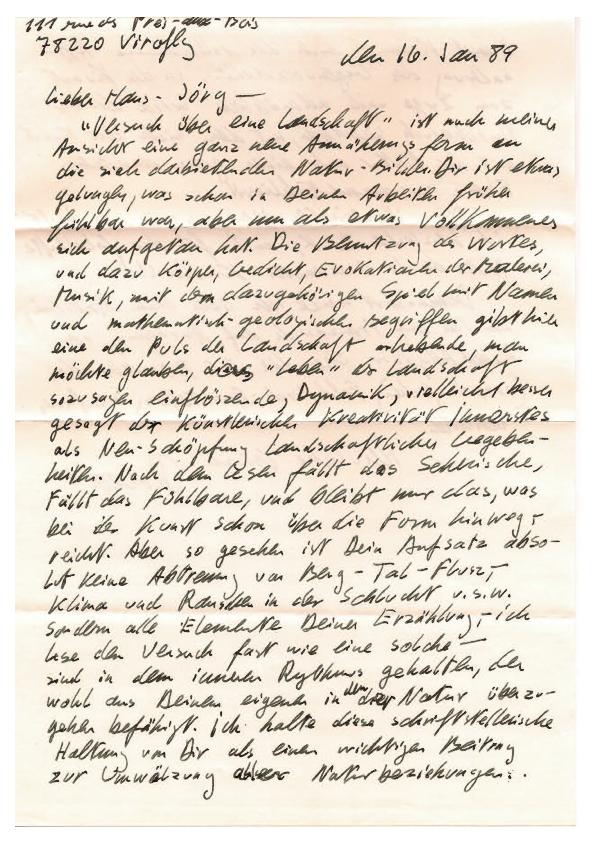 111 rue des Prés-aux-Bois
78220 Viroflay
den 16. Jan 89
Lieber Hans-Jörg —
"Versuch über eine Landschaft" ist nach meiner
Ansicht eine ganz neue Annäherungsform an
die sich darbietenden Natur-Bilder. Dir ist etwas
gelungen, was schon in Deinen Arbeiten früher
fühlbar war, aber nun als etwas Vollkommenes
sich aufgetan hat. Die Benutzung des Wortes,
und dazu Körper, Gedicht, Evokation der Malerei,
Musik, mit dem dazugehörigen Spiel mit Namen
und mathematisch-geologischen Begriffen gibt hier
eine den Puls der Landschaft erhebende, man
möchte glauben, dieses "Leben" der Landschaft
sozusagen einflössende, Dynamik, vielleicht besser
gesagt der künstlerischen Kreativität Innerstes
als Neu-Schöpfung landschaftlicher Gegeben-
heiten. Nach dem Lesen fällt das Seherische,
Fällt das Fühlbare, und bleibt nur das, was
bei der Kunst schon über die Form hinweg-
reicht. Aber so gesehen ist Dein Aufsatz abso-
lut keine Abtrennung von Berg-Tal-Fluss,
Klima und Rauschen in der Schlucht u.s.w.
sondern alle Elemente Deiner Erzählung, – ich
lese den Versuch fast wie eine solche –
sind in dem inneren Rythmus gehalten, der
wohl aus Deinem eigenen in den der Natur überzu-
gehen befähigt. Ich halte diese schriftstellerische
Haltung von Dir als einen wichtigen Beitrag
zur Umwälzung Naturbeziehungen.